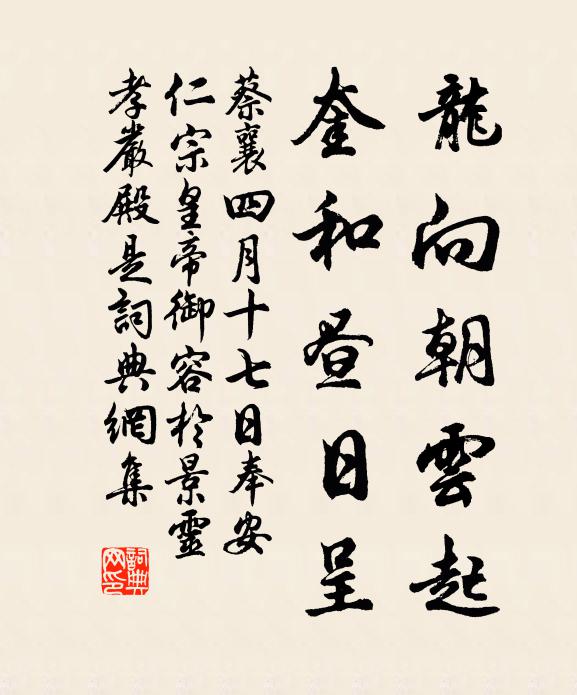 龍向朝雲起
奎和昼日呈
蔡襄四月十七日奉安
仁宗皇帝御容於景靈
孝嚴殿是詞典網集
詞典网印